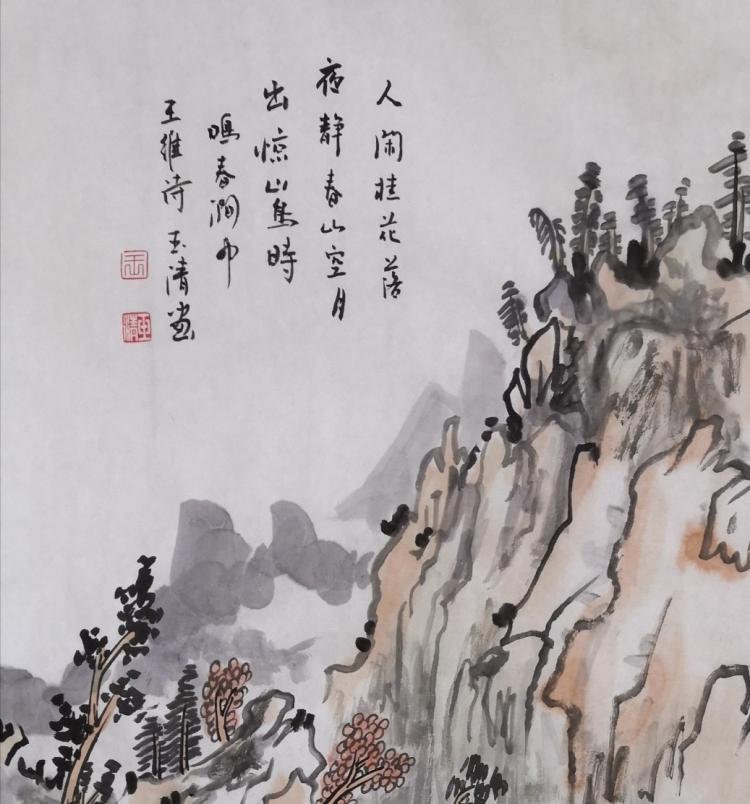 人闲桂花落
夜静春山空月
出惊山鸟時
鳴春涧中
王维诗 玉清画
王
玉清